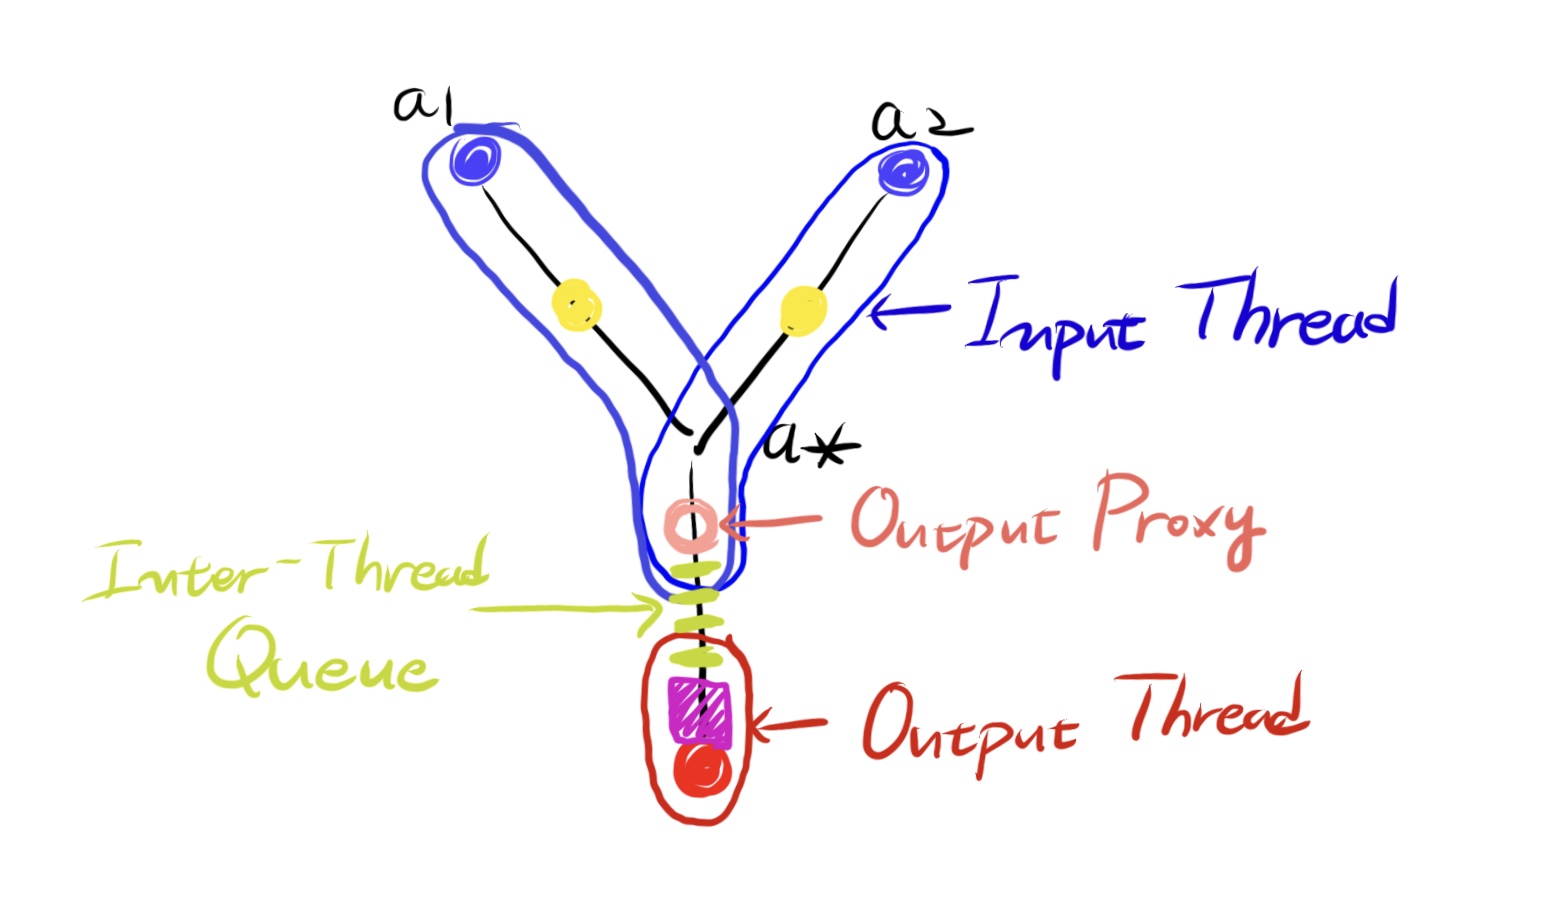 a1
a2
Input Thread
a*
Output Proxy
Inter-Thread
Queue
Output Thread